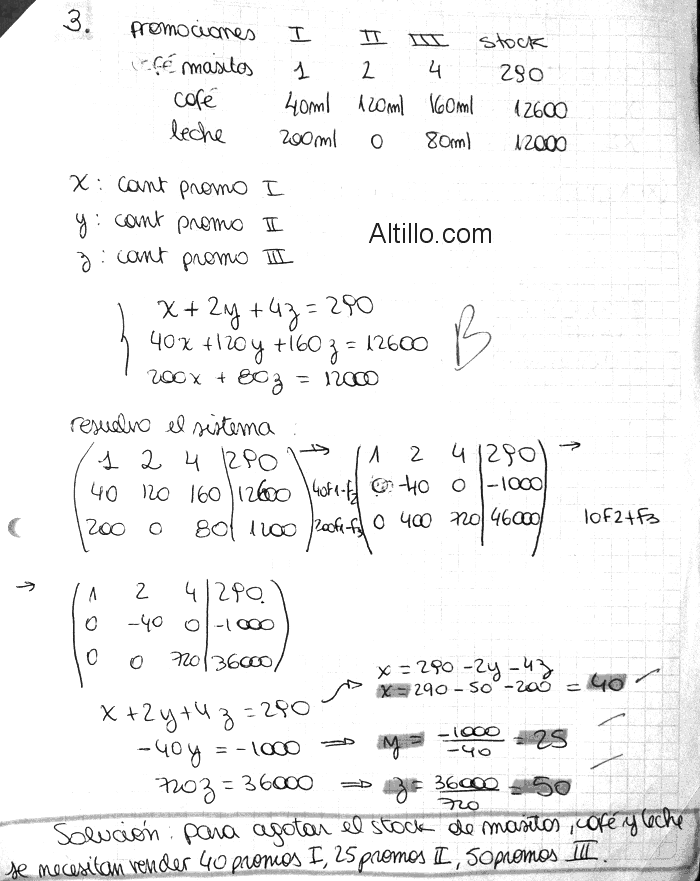 3. promociones I II III stock
masitos 1 2 4 290
café 40ml 120ml 160ml 12600
leche 200ml 0 80ml 12000
x : cant promo I
y : cant promo II
Altillo.com
z : cant promo III
x + 2y + 4z = 290
40x + 120y + 160z = 12600
B
200x + 80z = 12000
resuelvo el sistema :
1 2 4 | 290 → 1 2 4 | 290 →
40 120 160 | 12600 40f1-f2 0 -40 0 | -1000
200 0 80 | 1200 200f1-f3 0 400 720 | 46000 10F2+F3
→ 1 2 4 | 290
0 -40 0 | -1000
0 0 720 | 36000
x = 290 - 2y - 4z
x = 290 - 50 - 200 = 40 ✓
x + 2y + 4z = 290
-40y = -1000 ⇒ y = -1000/-40 = 25
720z = 36000 ⇒ z = 36000/720 = 50
Solución: para agotar el stock de masitos, café y leche
se necesitan vender 40 promos I, 25 promos II, 50 promos III.